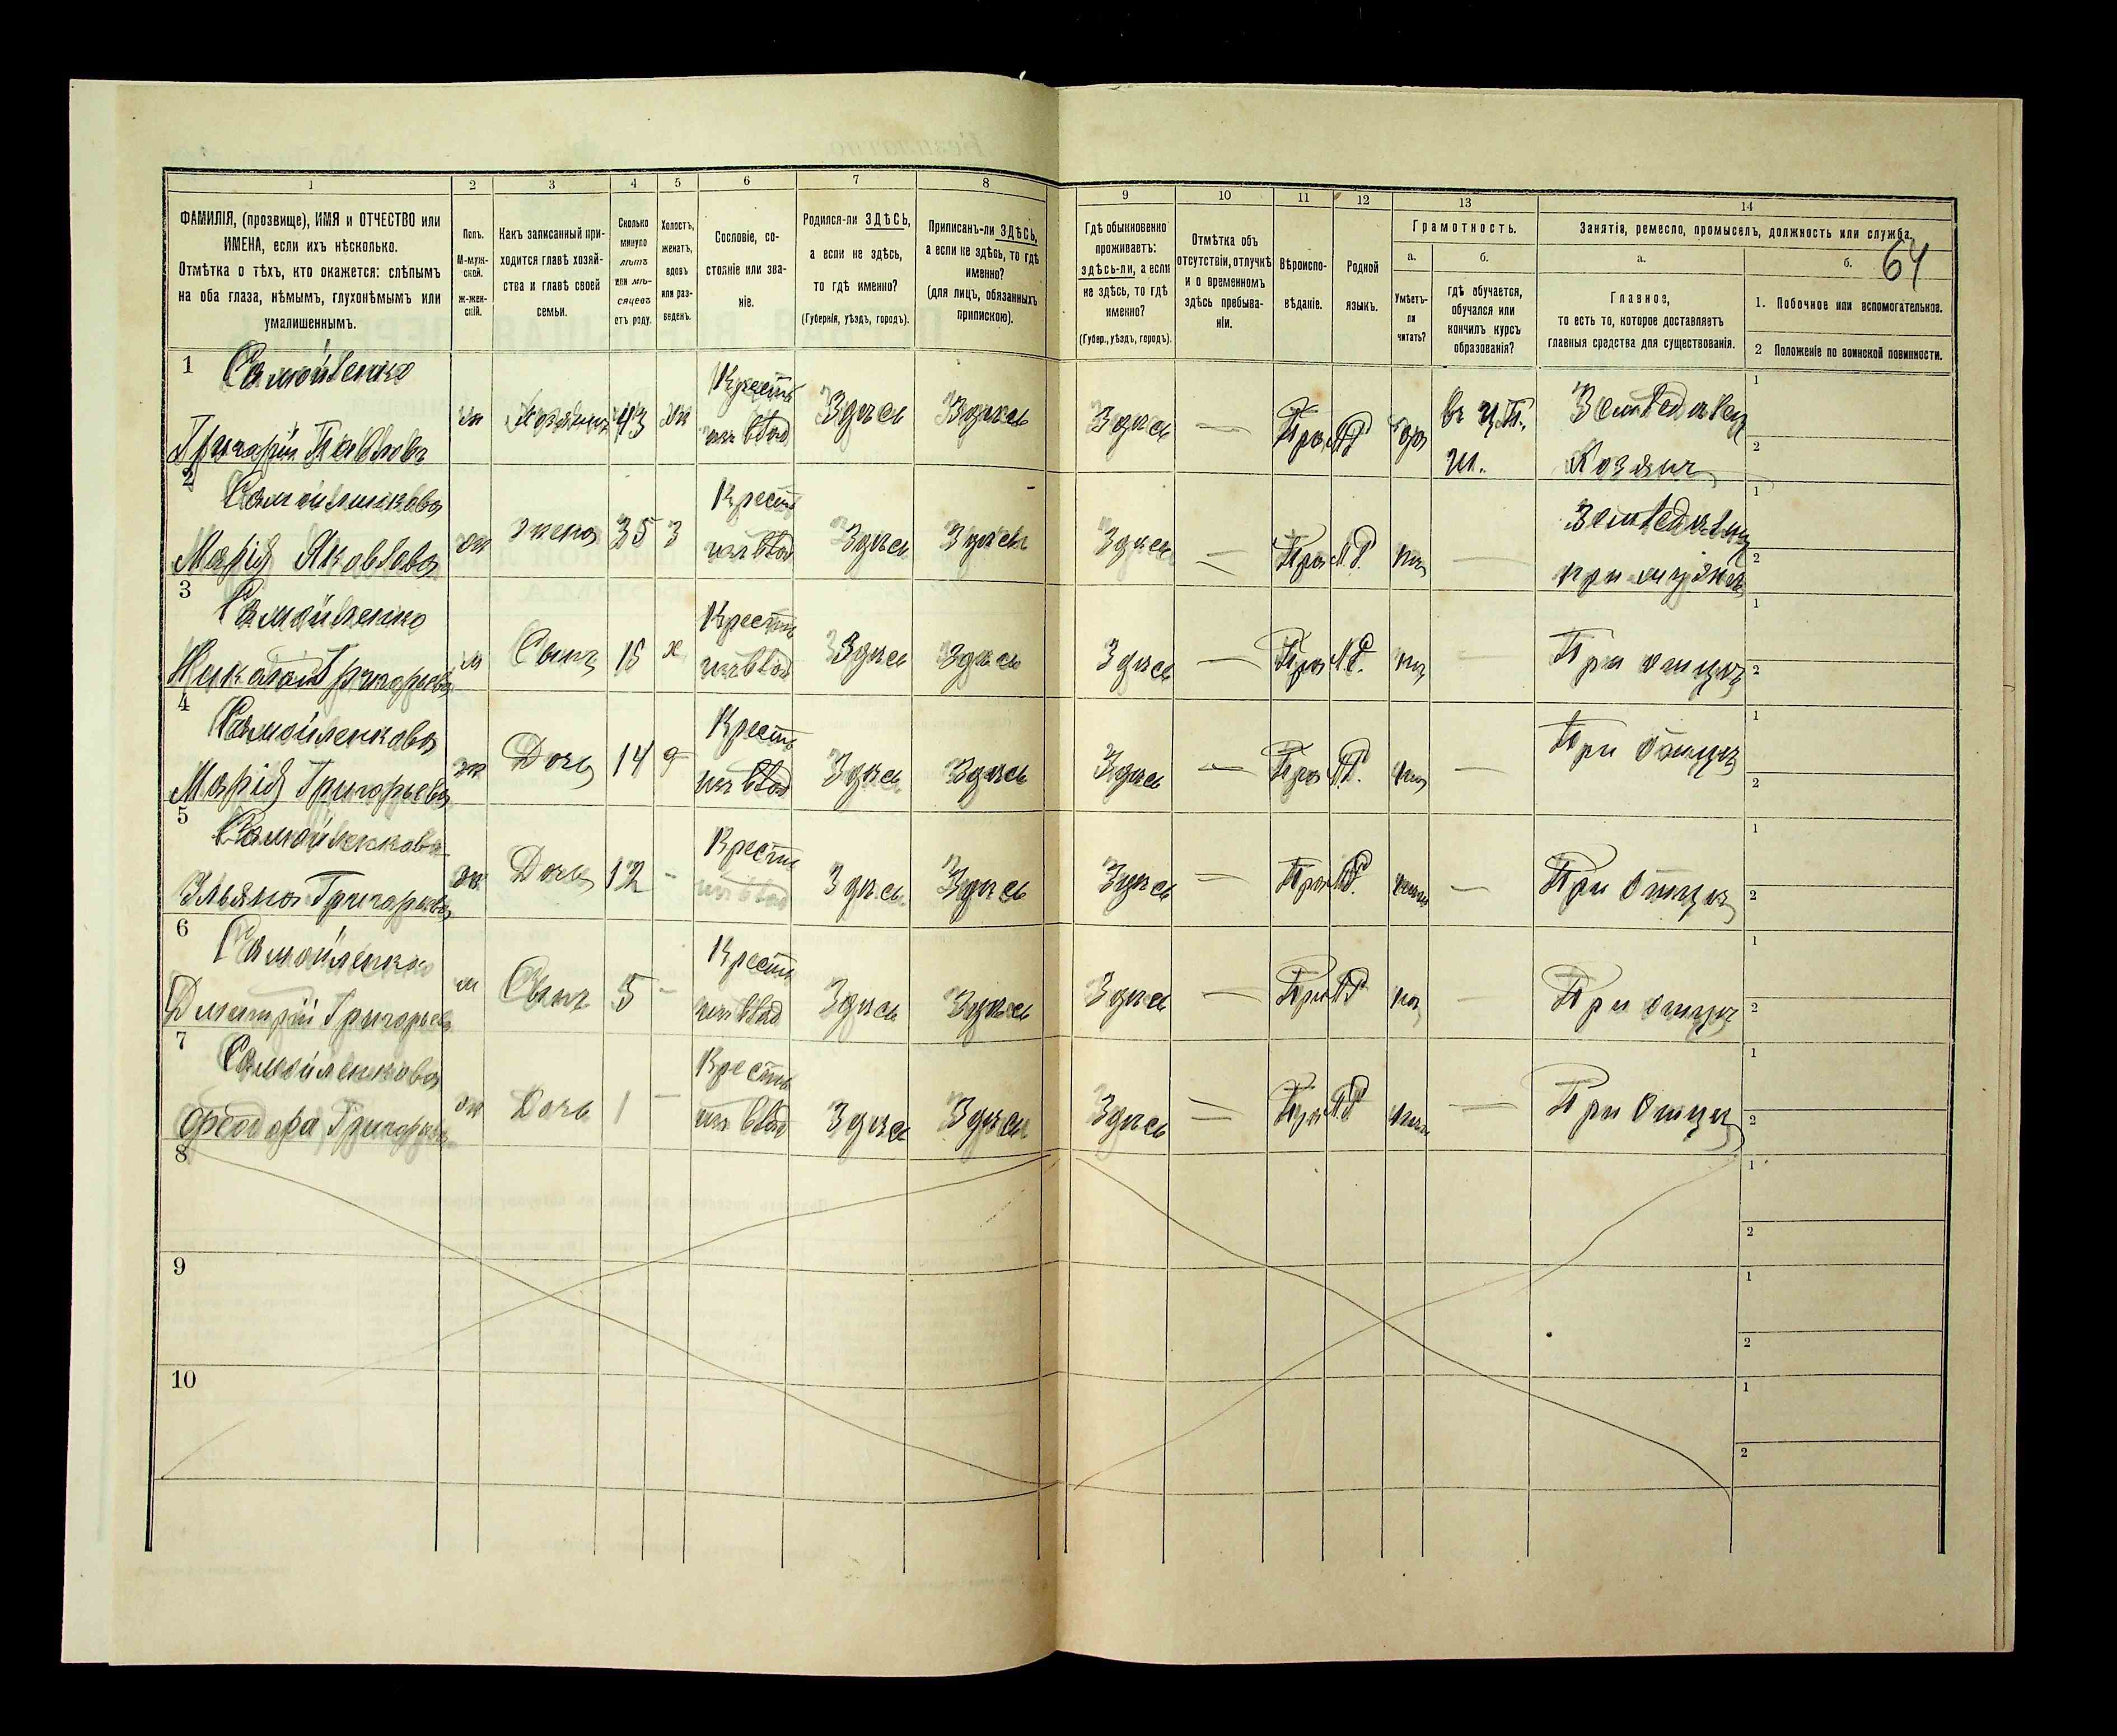 1 2 3 4 5 6 7 8
ФАМИЛІЯ, (прозвище), ИМЯ и ОТЧЕСТВО или
ИМЕНА, если ихъ нѣсколько.
Отмѣтка о тѣхъ, кто окажется: слѣпымъ
на оба глаза, нѣмымъ, глухонѣмымъ или
умалишеннымъ.
Полъ.
М-муж-
ской.
ж-жен-
скій.
Какъ записанный при-
ходится главѣ хозяй-
ства и главѣ своей
семьи.
Сколько
минуло
лѣтъ
или мѣ-
сяцевъ
отъ роду.
Холостъ,
женатъ,
вдовъ
или раз-
веденъ.
Сословіе, со-
стояніе или зва-
ніе.
Родился-ли ЗДѢСЬ,
а если не здѣсь,
то гдѣ именно?
(Губернія, уѣздъ, городъ).
Приписанъ-ли ЗДѢСЬ,
а если не здѣсь, то гдѣ
именно?
(для лицъ, обязанныхъ
припискою).
9 10 11 12 13 14
Гдѣ обыкновенно
проживаетъ:
здѣсь-ли, а если
не здѣсь, то гдѣ
именно?
(Губер., уѣздъ, городъ).
Отмѣтка объ
отсутствіи, отлучкѣ
и о временномъ
здѣсь пребыва-
ніи.
Вѣроиспо-
вѣданіе.
Родной
языкъ.
Грамотность.
а.
Умѣетъ-
ли
читать?
б.
гдѣ обучается,
обучался или
кончилъ курсъ
образованія?
Занятія, ремесло, промыселъ, должность или служба.
64
а.
Главное,
то есть то, которое доставляетъ
главныя средства для существованія.
б.
1. Побочное или вспомогательное.
2 Положеніе по воинской повинности.
1 Самойленко
Григорій Павловъ
м Хозяинъ 43 ж Крестъ
изъ влад Здѣсь Здѣсь Здѣсь — Пра да въ ц. п.
ш. Земледѣлец
Хозяинъ 1 2
2 Самойленкова
Марія Яковлева
ж жена 35 з Крест
изъ влад Здѣсь Здѣсь Здѣсь — Пра — Земледѣлец
1 2
3 Самойленко
Николай Григорьевъ
м Сынъ 15 х Крестъ
изъ влад Здѣсь Здѣсь Здѣсь — Пра — При отцѣ 1 2
4 Самойленкова
Марія Григорьева
ж Дочь 14 д Крестъ
изъ влад Здѣсь Здѣсь Здѣсь — Пра — При отцѣ 1 2
5 Самойленкова
Ульяна Григорьева
ж Дочь 12 - Крестъ
изъ влад Здѣсь Здѣсь Здѣсь — Пра — При отцѣ 1 2
6 Самойленко
Дмитрій Григорьевъ
м Сынъ 5 - Крестъ
изъ влад Здѣсь Здѣсь Здѣсь — Пра — При отцѣ 1 2
7 Самойленкова
Феодора Григорьева
ж Дочь 1 — Крестъ
изъ влад Здѣсь Здѣсь Здѣсь — Пра — При отцѣ 1 2
8 1 2
9 1 2
10 1 2